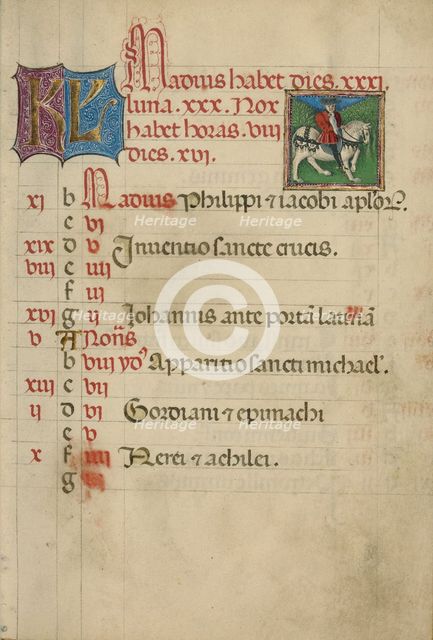 KL Madius habet dies. xxxi.
luna. xxx. Nox
habet horas. viii
dies. xvi.
xi b Madius Philippi ⁊ iacobi aplor̄.
c vi
xix d v Inuentio sancte crucis.
viii e iiii
f iii
xvi g ii Iohannis ante portā latinā
v A Nonis
b viii yd' Apparitio sancti michael'.
xiii c vii
ii d vi Gordiani ⁊ epimachi
e v
x f iiii Nerei ⁊ achilei.
g iii